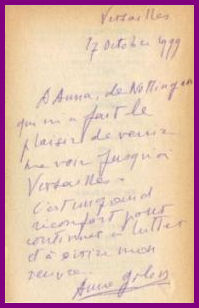 Versailles
17 October 1999
A Anna, de Nottingen
qui m'a fait le
plaisir de venir
me voir jusqu'à
Versailles.
C'est un grand
réconfort pour
continuer à lutter
et à écrire mon
Anne Golon